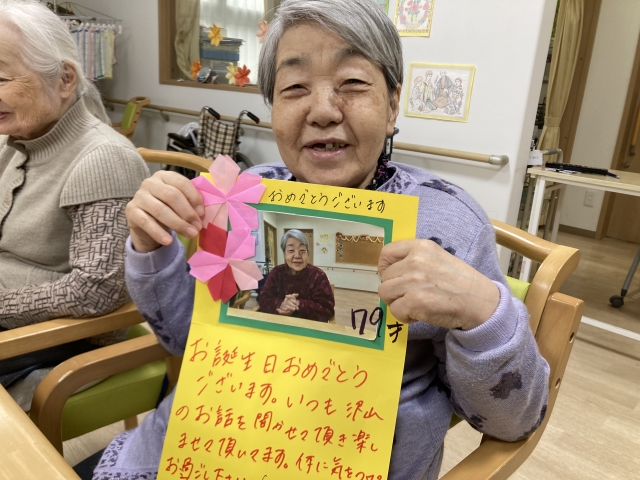 おめでとうございます
79才
お誕生日おめでとう
ございます。いつも沢山
のお話を聞かせて頂き楽し
ませて頂いてます。体に気をつけて
お過ごしください